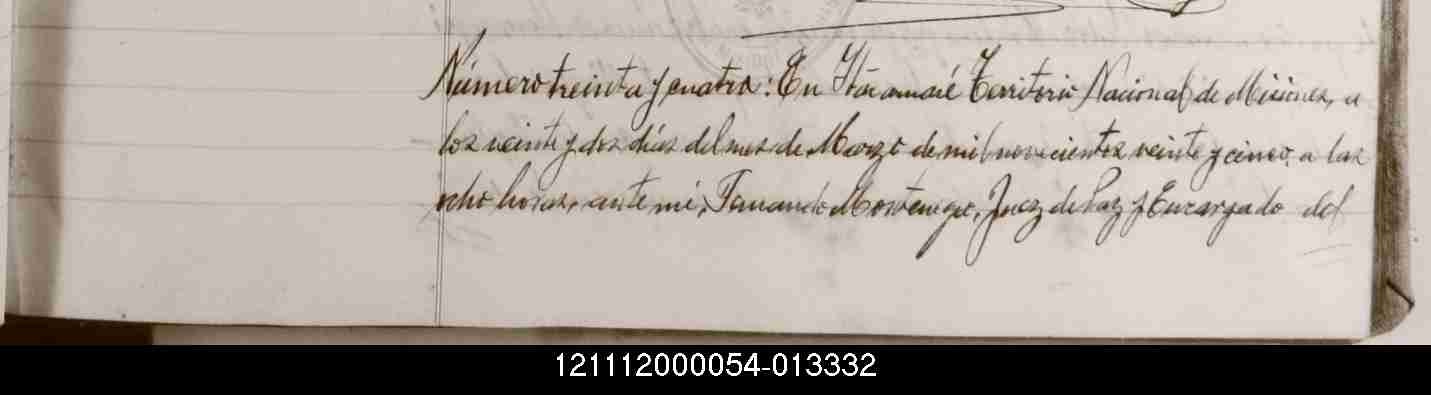 Número treinta y cuatro: En Itacaruaré Territorio Nacional de Misiones, a
los veinte y dos días del mes de Marzo de mil novecientos veinte y cinco, a las
ocho horas, ante mí, Fernando Montenegro, Juez de Paz y Encargado del
121112000054-013332